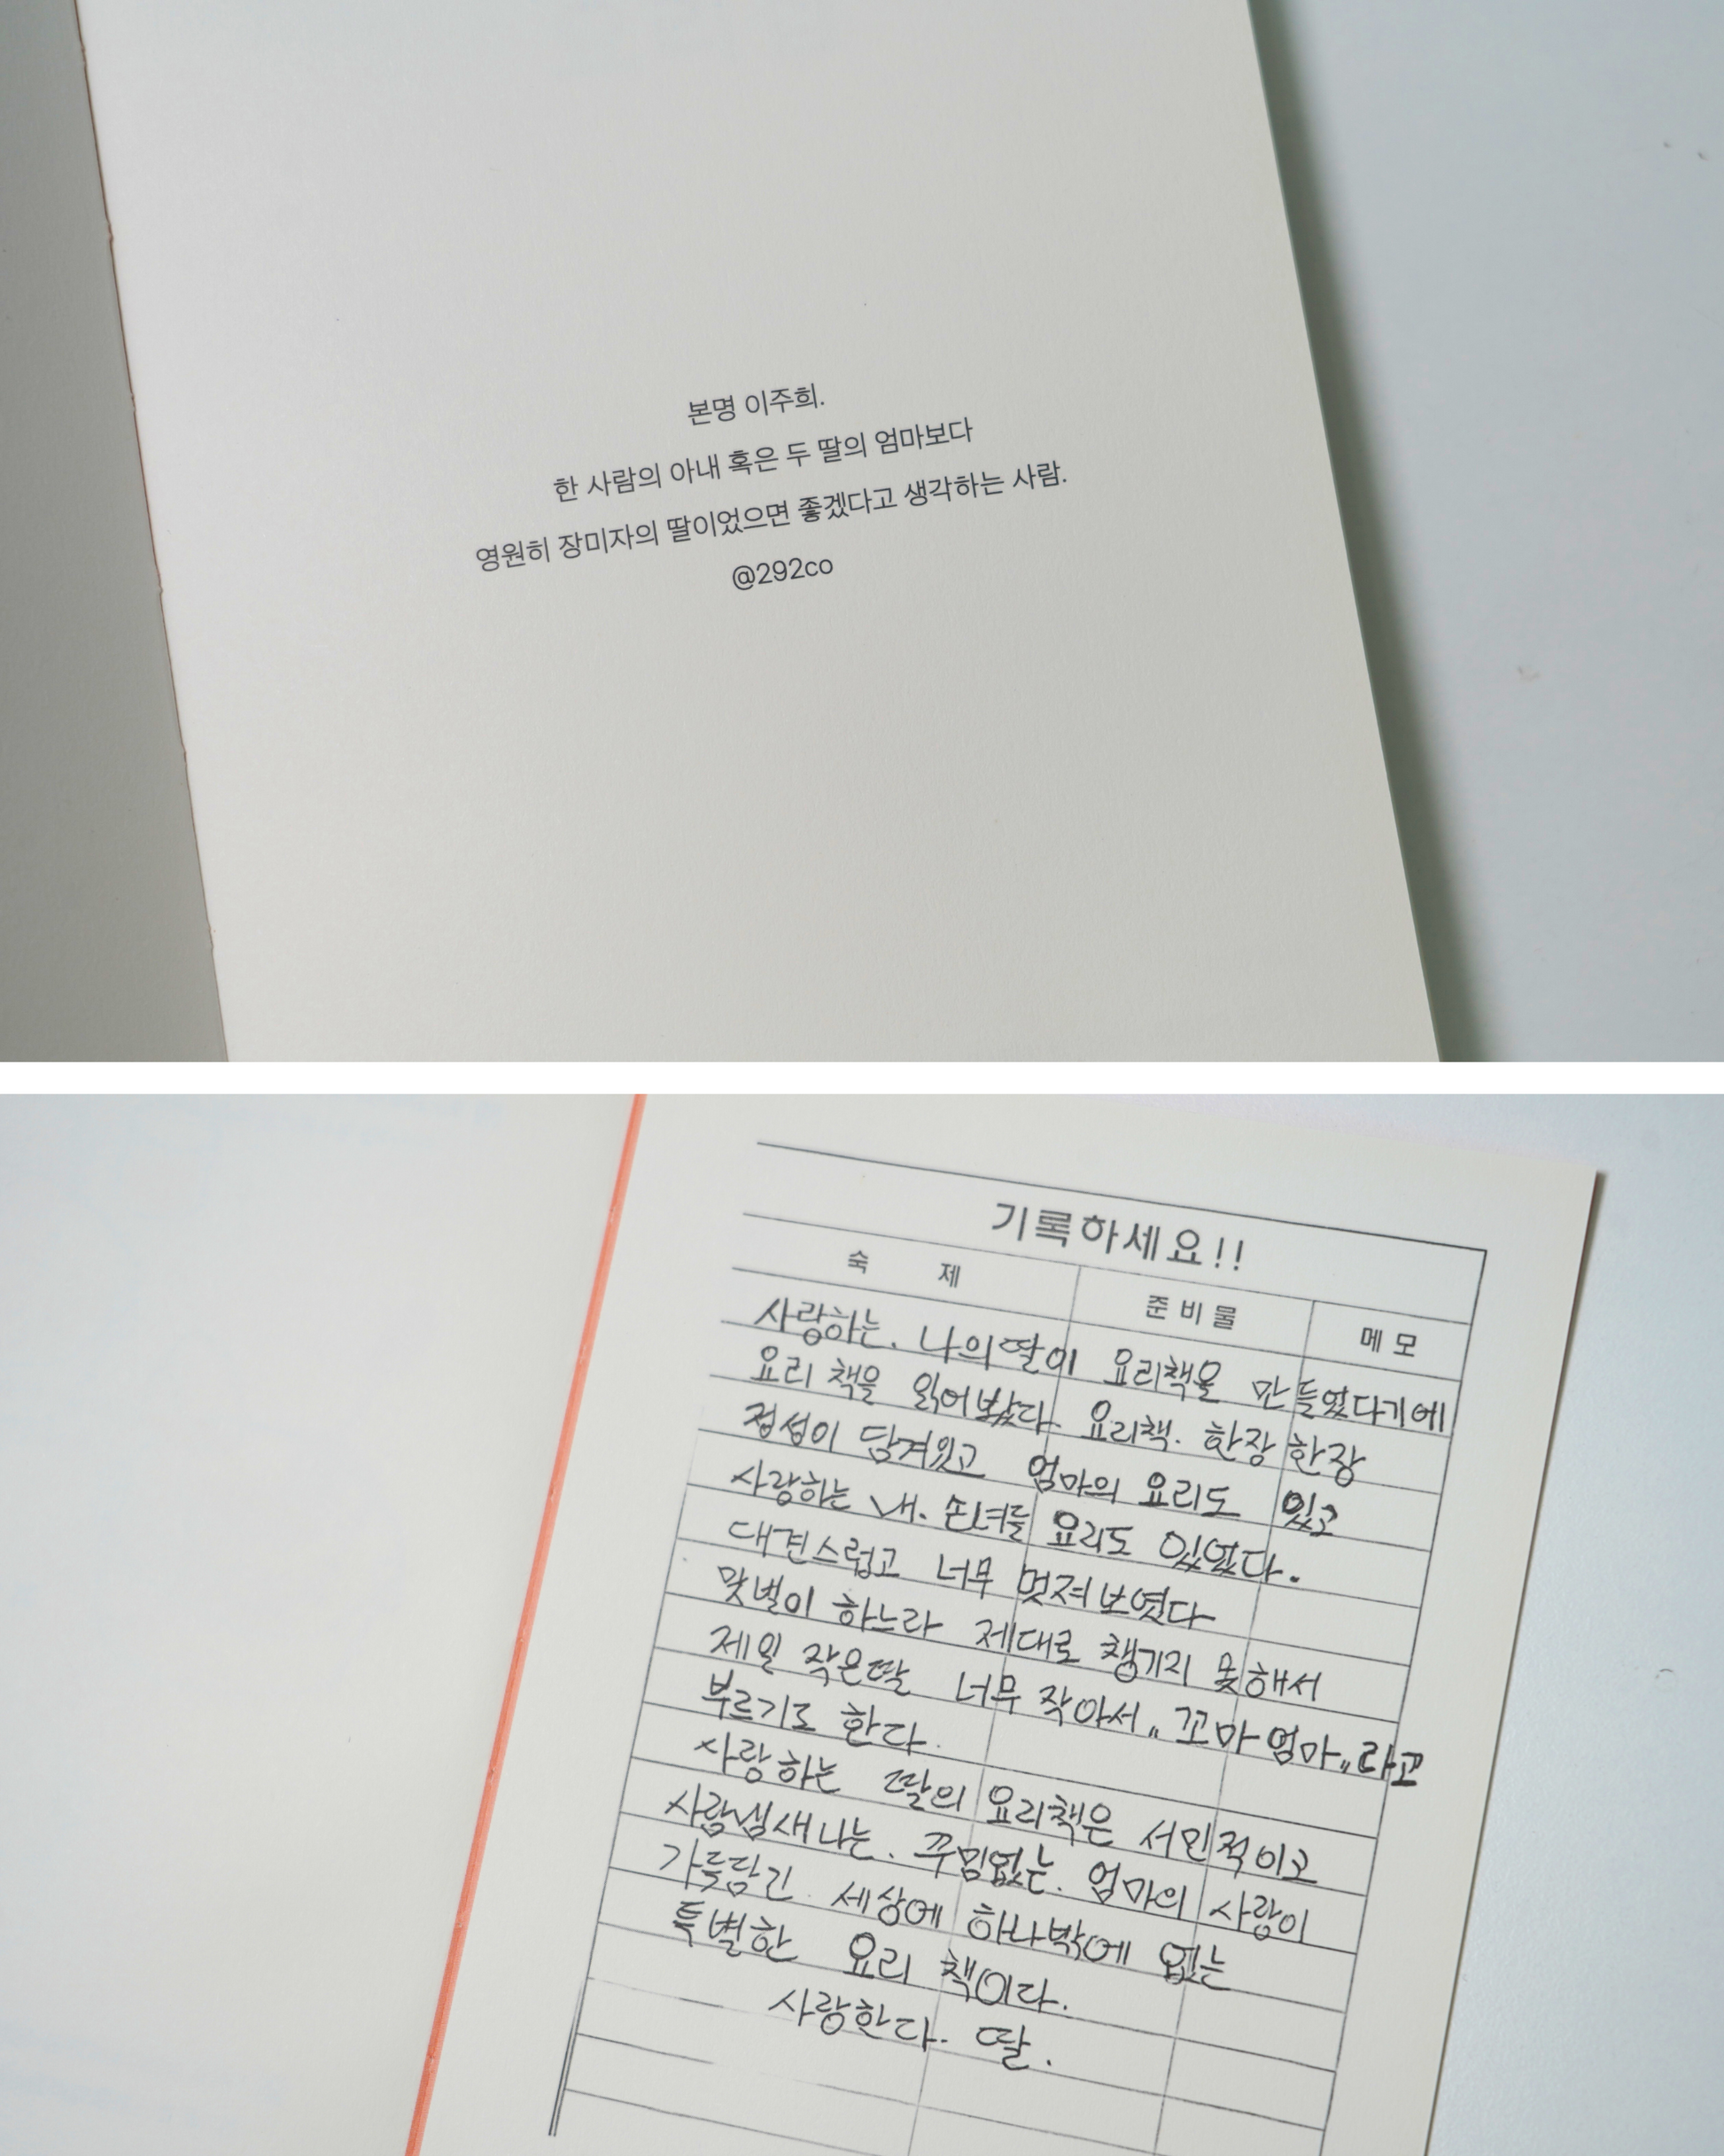 본명 이주희.
한 사람의 아내 혹은 두 딸의 엄마보다
영원히 장미자의 딸이었으면 좋겠다고 생각하는 사람.
@292co
기록하세요!!
숙 제 준비물 메모
사랑하는. 나의 딸이 요리책을 만들었다기에
요리 책을 읽어봤다. 요리책. 한장 한장
정성이 담겨있고 엄마의 요리도 있고
사랑하는 내. 손녀들 요리도 있었다.
대견스럽고 너무 멋져 보였다
맞벌이 하느라 제대로 챙기지 못해서
제일 작은딸 너무 작아서 „ 꼬마 엄마 „ 라고
부르기도 한다.
사랑하는 딸의 요리책은 서민적이고
사람냄새나는. 꾸밈없는. 엄마의 사랑이
가득담긴. 세상에 하나밖에 없는
특별한 요리 책이다.
사랑한다. 딸.